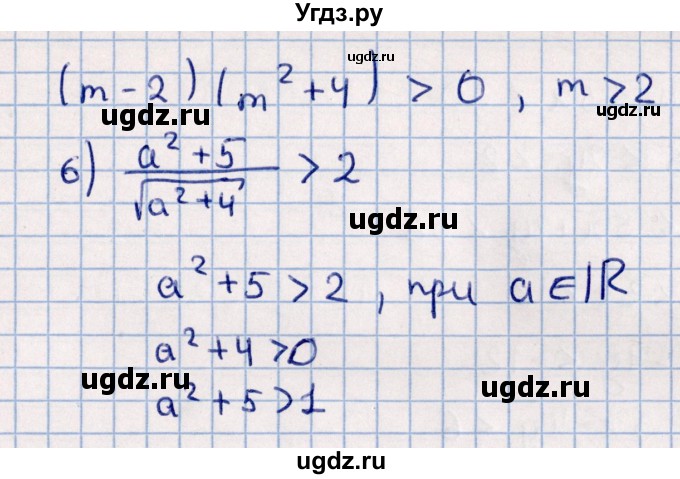 Угдз.ру
ugdz.ru
(m-2)(m²+4) > 0, m>2
ugdz.ru ugdz.ru
б) (a²+5)/√(a²+4) > 2
ugdz.ru
a²+5>2, при a∈ℝ
a²+4>0
ugdz.ru ugdz.ru
a²+5>1
ugdz.ru